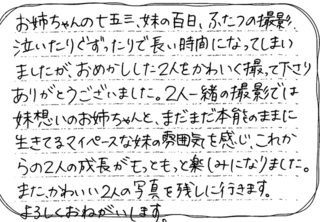 お姉ちゃんの七五三、妹の百日、ふたつの撮影、
泣いたりぐずったりで長い時間になってしまい
ましたが、おめかしした2人をかわいく撮って下さり
ありがとうございました。2人一緒の撮影では
妹想いのお姉ちゃんと、まだまだ本能のままに
生きてるマイペースな妹の雰囲気を感じ、これか
らの2人の成長がもっともっと楽しみになりました。
また、かわいい2人の写真を残しに行きます。
よろしくおねがいします。